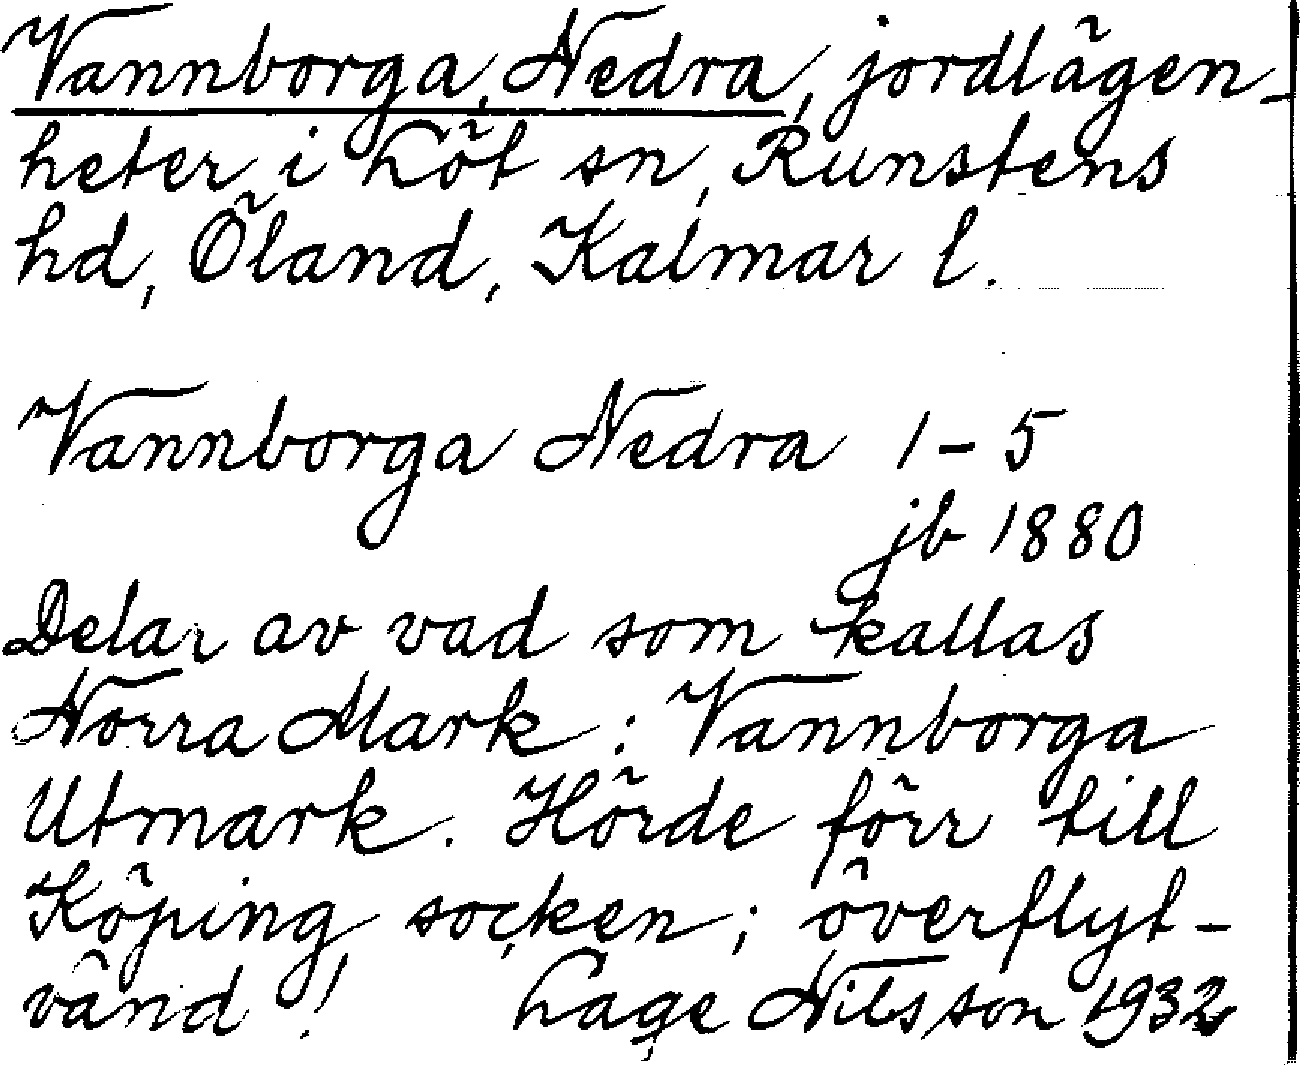 Vannborga, Nedra, jordlägen-
heter i Löt sn, Runstens
hd, Öland, Kalmar l.
Vannborga Nedra 1-5
jb 1880
Delar av vad som kallas
Norra Mark: Vannborga
Utmark. Hörde förr till
Köping socken; överflyt-
vänd! Lage Nilsson 1932